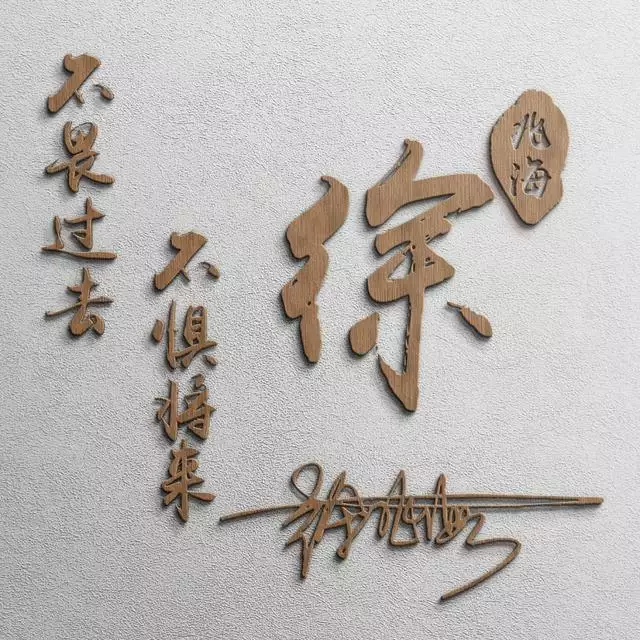 不畏过去
不惧将来
徐
兆海